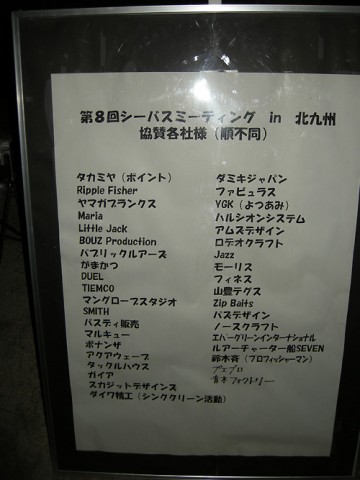 第８回シーバスミーティング in 北九州
協賛各社様（順不同）
タカミヤ（ポイント）
Ripple Fisher
ヤマガブランクス
Maria
Little Jack
BOUZ Production
パブリックルアーズ
がまかつ
DUEL
TIEMCO
マングローブスタジオ
SMITH
バスディ販売
マルキュー
ボナンザ
アクアウェーブ
タックルハウス
ガイア
スカジットデザインズ
ダイワ精工（シンククリーン活動）
ダミキジャパン
ファビュラス
YGK（よつあみ）
ハルシオンシステム
アムズデザイン
ロデオクラフト
Jazz
モーリス
フィネス
山豊テグス
Zip Baits
バスデザイン
ノースクラフト
エバーグリーンインターナショナル
ルアーチャーター船SEVEN
鈴木斉（プロフィッシャーマン）
青木ファクトリー